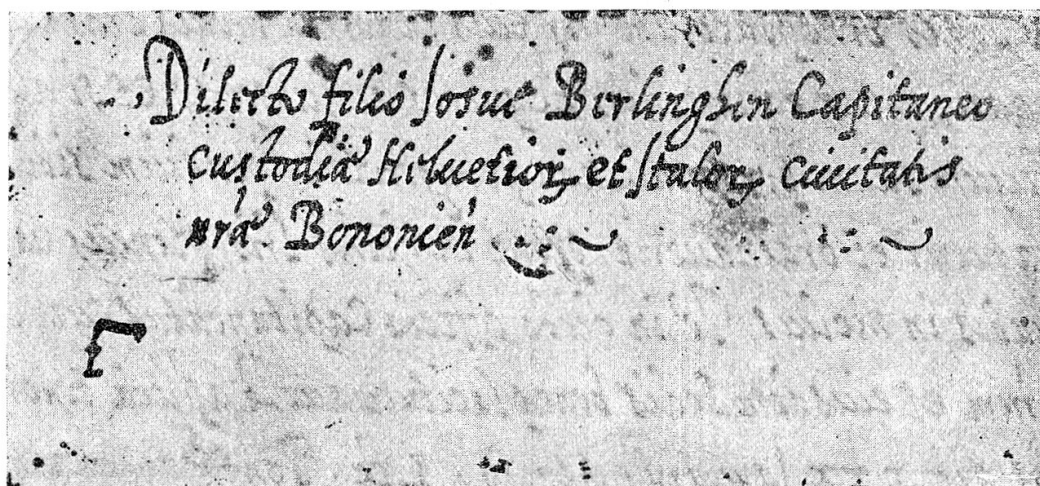 Dilecto filio Josue Berlinghen Capitaneo
Custodiæ Helvetioꝝ et Italoꝝ civitatis
nrãe Bononień